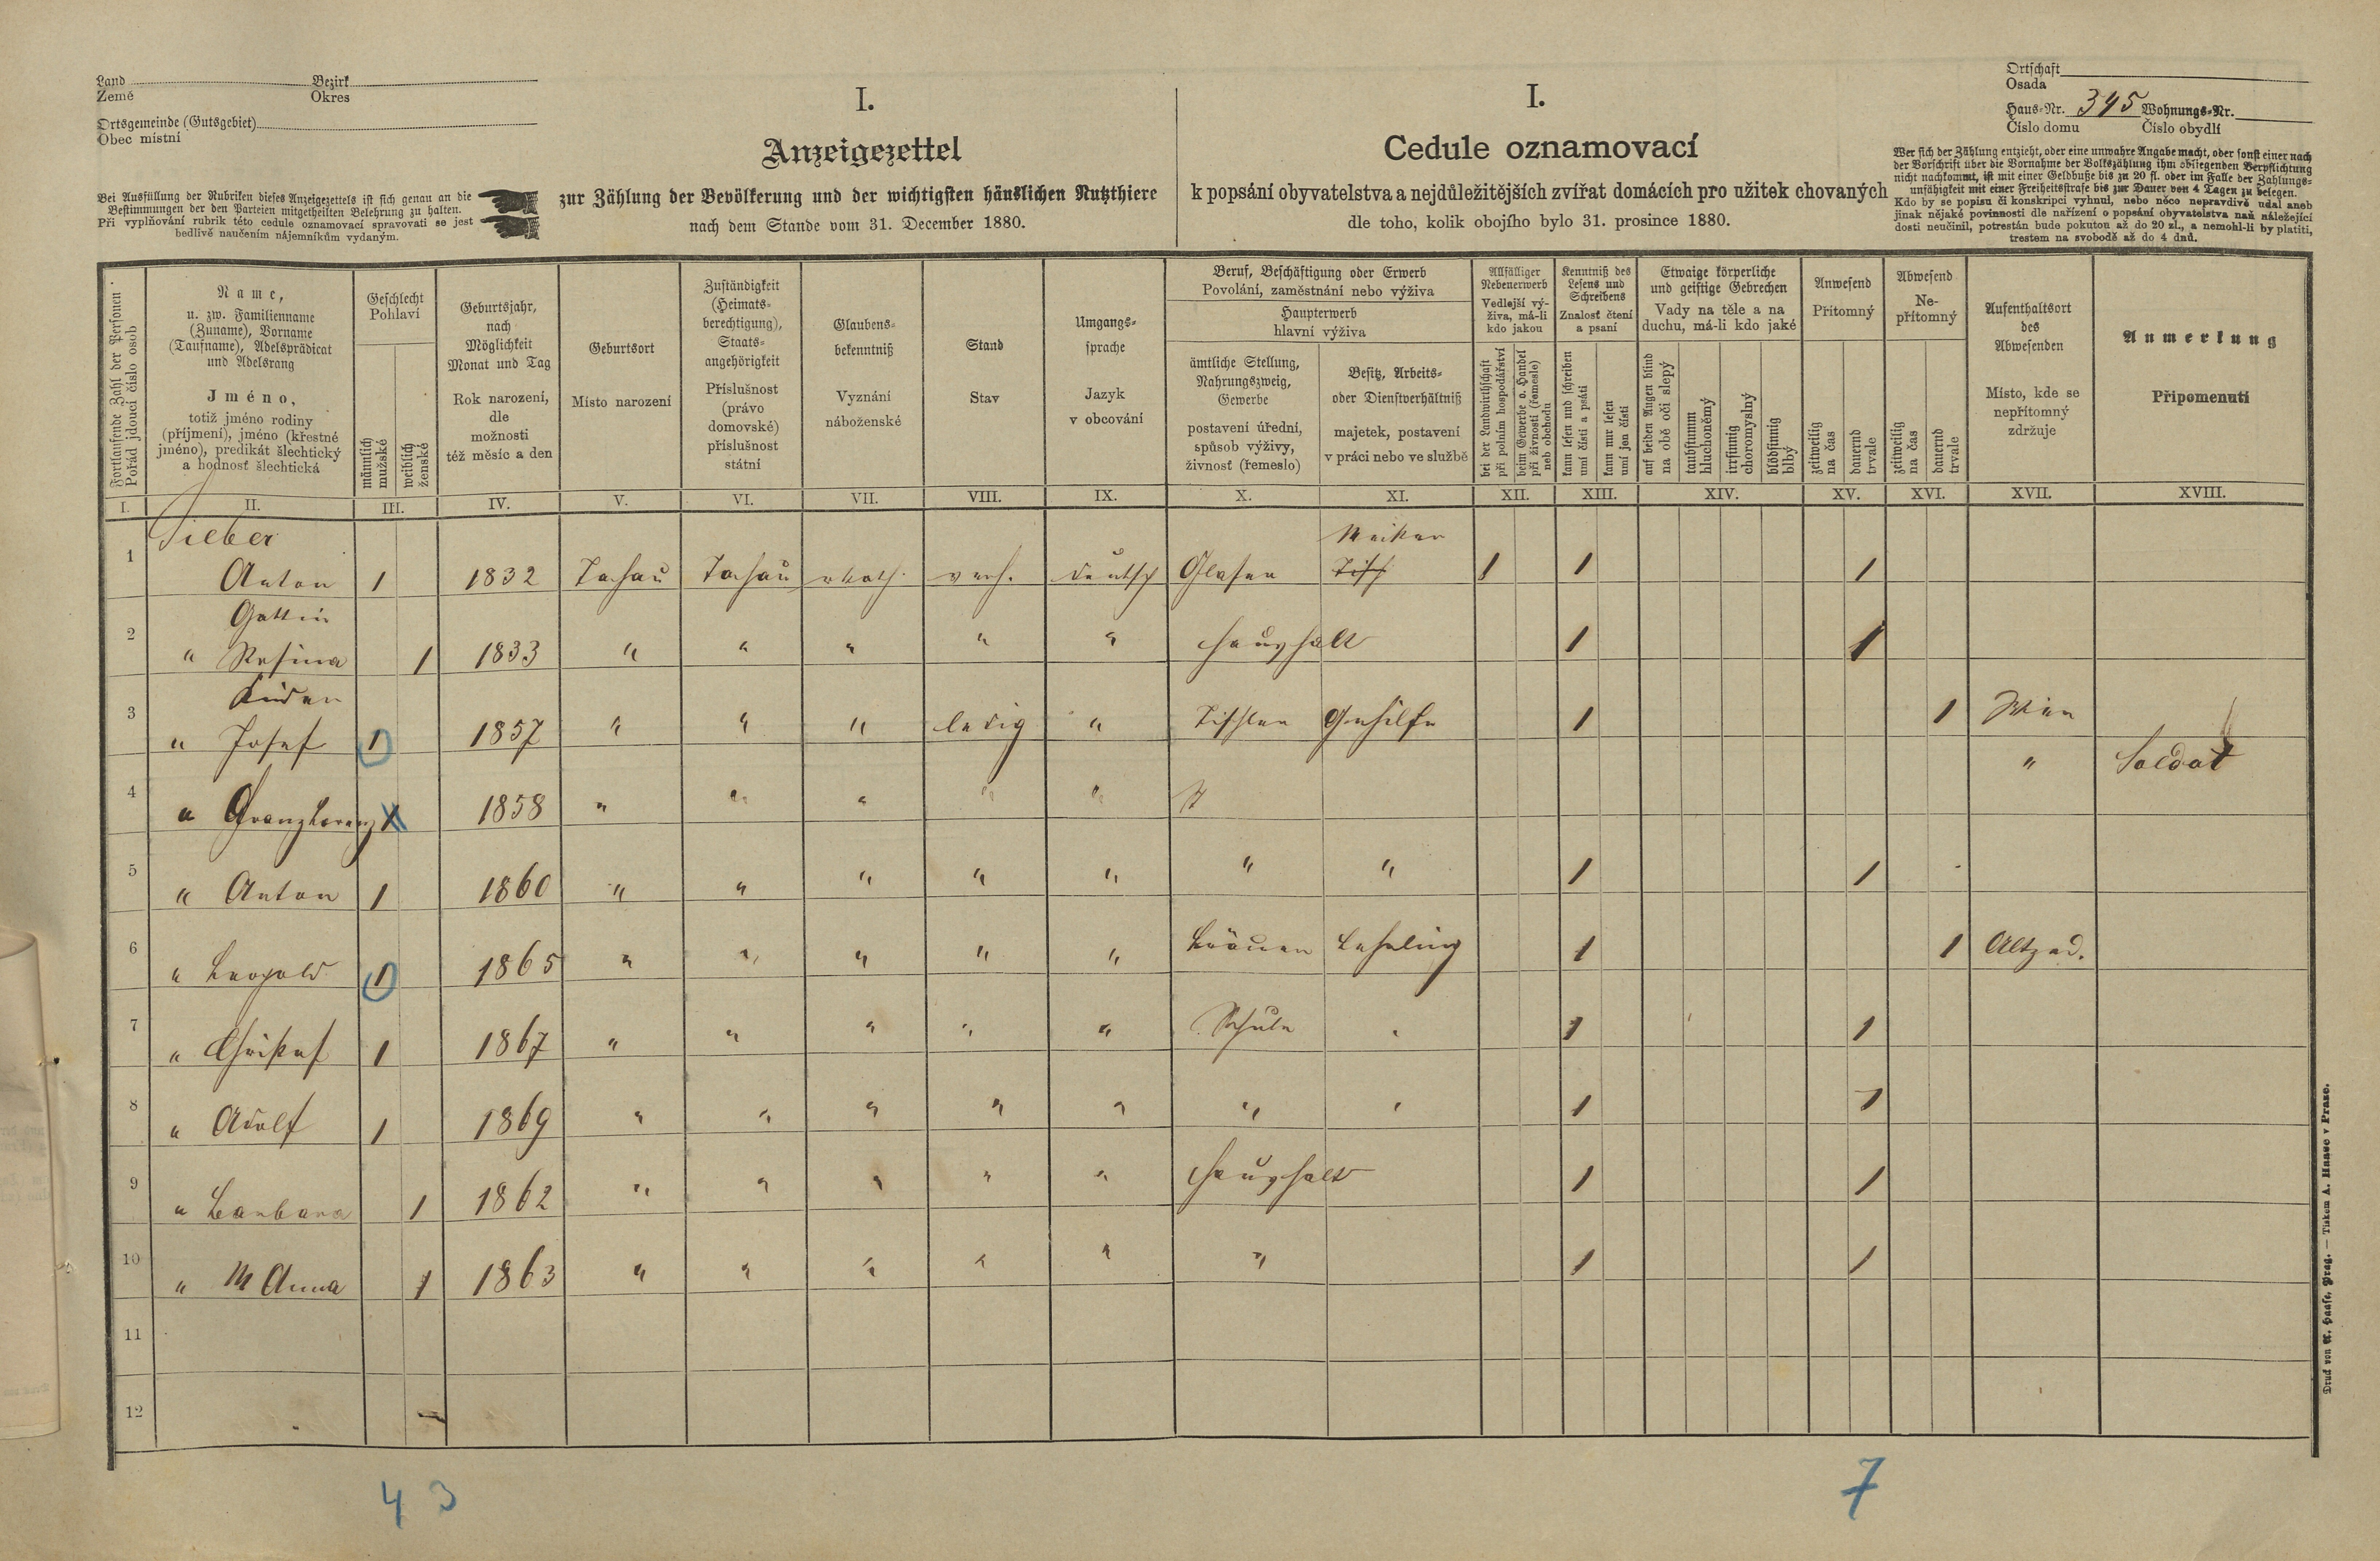 Land Bezirk
Země Okres
Ortsgemeinde (Gutsgebiet)
Obec místní
Bei Ausfüllung der Rubriken dieses Anzeigezettels ist sich genau an die
Bestimmungen der den Parteien mitgetheilten Belehrung zu halten.
Při vyplňování rubrik této cedule oznamovací spravovati se jest
bedlivě naučením nájemníkům vydaným.
I.
Anzeigezettel
zur Zählung der Bevölkerung und der wichtigsten häuslichen Nutzthiere
nach dem Stande vom 31. December 1880.
I.
Cedule oznamovací
k popsání obyvatelstva a nejdůležitějších zvířat domácích pro užitek chovaných
dle toho, kolik obojího bylo 31. prosince 1880.
Ortschaft
Osada
Haus-Nr. 345 Wohnungs-Nr.
Číslo domu Číslo obydlí
Wer sich der Zählung entzieht, oder eine unwahre Angabe macht, oder sonst einer nach
der Vorschrift über die Vornahme der Volkszählung ihm obliegenden Verpflichtung
nicht nachkommt, ist mit einer Geldbuße bis zu 20 fl. oder im Falle der Zahlungs-
unfähigkeit mit einer Freiheitsstrafe bis zur Dauer von 4 Tagen zu belegen.
Kdo by se popisu či konskripci vyhnul, nebo něco nepravdivě udal aneb
jinak nějaké povinnosti dle nařízení o popsání obyvatelstva naň náležející
dosti neučinil, potrestán bude pokutou až do 20 zl., a nemohl-li by platiti,
trestem na svobodě až do 4 dnů.
Fortlaufende Zahl der Personen
Pořád jdoucí číslo osob
Name,
u. zw. Familienname
(Zuname), Vorname
(Taufname), Adelsprädicat
und Adelsrang
Jméno,
totiž jméno rodiny
(příjmení), jméno (křestné
jméno), predikát šlechtický
a hodnosť šlechtická
Geschlecht
Pohlaví
männlich
mužské
weiblich
ženské
Geburtsjahr,
nach
Möglichkeit
Monat und Tag
Rok narození,
dle
možnosti
též měsíc a den
Geburtsort
Místo narození
Zuständigkeit
(Heimats-
berechtigung),
Staats-
angehörigkeit
Příslušnost
(právo
domovské)
příslušnost
státní
Glaubens-
bekenntniß
Vyznání
náboženské
Stand
Stav
Umgangs-
sprache
Jazyk
v obcování
Beruf, Beschäftigung oder Erwerb
Povolání, zaměstnání nebo výživa
Haupterwerb
hlavní výživa
ämtliche Stellung,
Nahrungszweig,
Gewerbe
postavení úřední,
spůsob výživy,
živnosť (řemeslo)
Besitz, Arbeits-
oder Dienstverhältniß
majetek, postavení
v práci nebo ve službě
Allfälliger
Nebenerwerb
Vedlejší vý-
živa, má-li
kdo jakou
bei der Landwirthschaft
při polním hospodářství
beim Gewerbe o. Handel
při živnosti (řemesle)
neb obchodu
Kenntniß des
Lesens und
Schreibens
Znalost čtení
a psaní
kann lesen und schreiben
umí čísti a psáti
kann nur lesen
umí jen čísti
Etwaige körperliche
und geistige Gebrechen
Vady na těle a na
duchu, má-li kdo jaké
auf beiden Augen blind
na obě oči slepý
taubstumm
hluchoněmý
irrsinnig
choromyslný
blödsinnig
blbý
Anwesend
Přítomný
zeitweilig
na čas
dauernd
trvale
Abwesend
Ne-
přítomný
zeitweilig
na čas
dauernd
trvale
Aufenthaltsort
des
Abwesenden
Místo, kde se
nepřítomný
zdržuje
Anmerkung
Připomenutí
I. II. III. IV. V. VI. VII. VIII. IX. X. XI. XII. XIII. XIV. XV. XVI. XVII. XVIII.
Sieber
Meister
1 Anton 1 1832 Tachau Tachau rkath. verh. deutsch Glaser Tisch 1 1 1
Gattin
2 " Rosina 1 1833 " " " " " Haushalt 1 1
Kinder
3 " Josef 1 1857 " " " ledig " Tischler Gehilfe 1 1 Wien
4 " Franz Lorenz 1 1858 " " " " " " " Soldat
5 " Anton 1 1860 " " " " " " " 1 1
6 " Leopold 1 1865 " " " " " Bräuer Lehrling 1 1 Altzed.
7 " Christof 1 1867 " " " " " Schule " 1 1
8 " Adolf 1 1869 " " " " " " " 1 1
9 " Barbara 1 1862 " " " " " Haushalt 1 1
10 " M Anna 1 1863 " " " " " " 1 1
11
12
4 3
7
Druck von A. Haase, Prag. — Tiskem A. Haase v Praze.